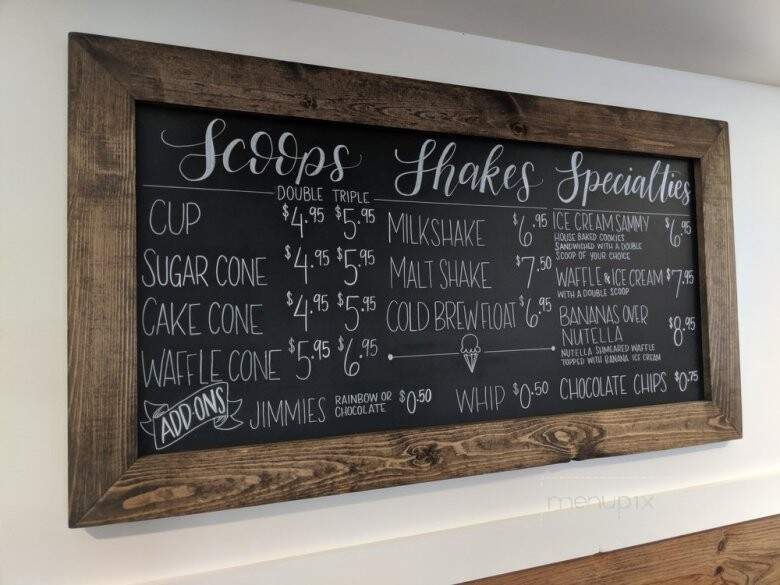 Scoops
DOUBLE TRIPLE
CUP $4.95 $5.95
SUGAR CONE $4.95 $5.95
CAKE CONE $4.95 $5.95
WAFFLE CONE $5.95 $6.95
Shakes
MILKSHAKE $6.95
MALT SHAKE $7.50
COLD BREW FLOAT $6.95
Specialties
ICE CREAM SAMMY $6.95
HOUSE BAKED COOKIES
SANDWICHED WITH A DOUBLE
SCOOP OF YOUR CHOICE
WAFFLE & ICE CREAM $7.95
WITH A DOUBLE SCOOP
BANANAS OVER
NUTELLA $8.95
NUTELLA SHMEARED WAFFLE
TOPPED WITH BANANA ICE CREAM
ADD-ONS
JIMMIES RAINBOW OR CHOCOLATE $0.50
WHIP $0.50
CHOCOLATE CHIPS $0.75
menupix